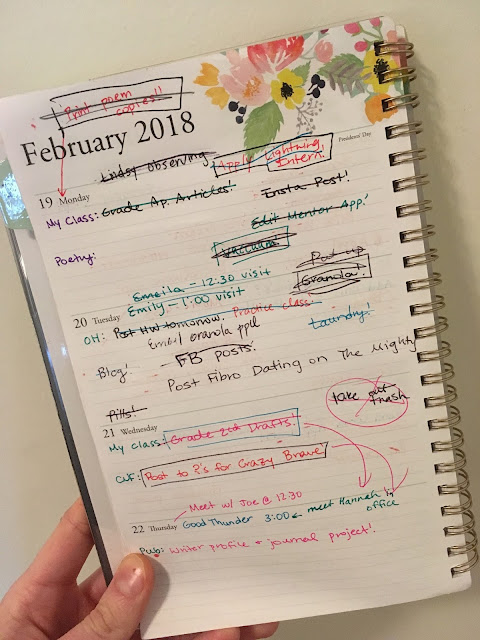 Print poem
copies!!
February 2018
Presidents' Day
Lindsy observing
Apply Lightning
Intern!
19 Monday
My Class: Grade Ap. Articles! Insta Post!
Edit Mentor App!
Poetry:
Put up
Granola!
Emeila - 12:30 visit
Emily - 1:00 visit
20 Tuesday
Practice class
OH: Post HW tomorrow.
Email granola ppl
Laundry!
Blog! FB posts!
Post Fibro Dating on The Mighty
Pills!
take out
trash
21 Wednesday
My class: Grade 2nd Drafts!
CNF: Post to P's for Crazy Brave
Meet w/ Joe @ 12:30
22 Thursday Good Thunder 3:00 ← meet Hannah in
office
Pub: Writer profile + journal project!